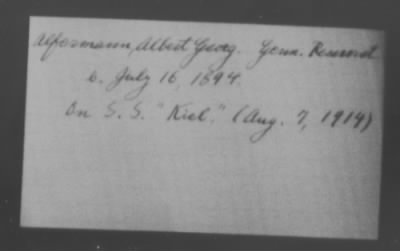 Alfosmann, Albert Georg. Germ. Reservist
b. July 16, 1894.
On S. S. "Kiel." (Aug. 7, 1914)